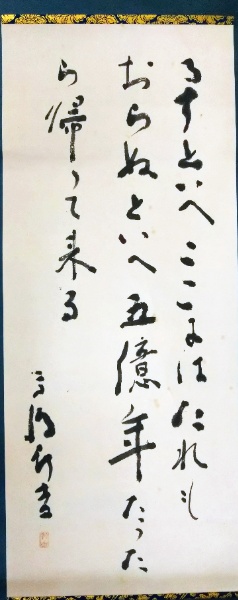 るすといへここにはたれも
おらぬといへ五億年たった
ら帰って来る
高橋新吉